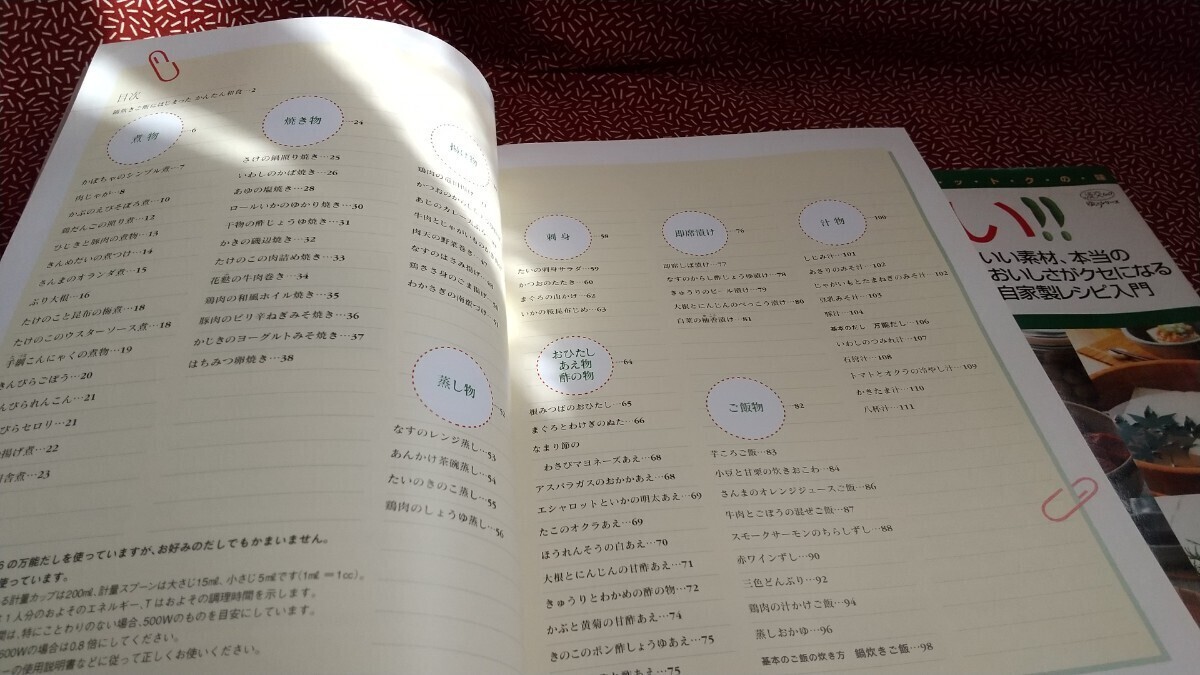 目次
鍋炊きご飯にはじまった かんたん和食…2
煮物 …6
かぼちゃのシンプル煮…7
肉じゃが…8
かぶのえびそぼろ煮…10
鶏だんごの照り煮…12
ひじきと豚肉の煮物…13
きんめだいの煮つけ…14
さんまのオランダ煮…15
ぶり大根…16
たけのこと昆布の梅煮…18
たけのこのウスターソース煮…18
手綱こんにゃくの煮物…19
きんぴらごぼう…20
んぴられんこん…21
ぴらセロリ…21
揚げ煮…22
舎煮…23
焼き物 …24
さけの鍋照り焼き…25
いわしのかば焼き…26
あゆの塩焼き…28
ロールいかのゆかり焼き…30
干物の酢じょうゆ焼き…31
かきの磯辺焼き…32
たけのこの肉詰め焼き…33
花麩の牛肉巻き…34
鶏肉の和風ホイル焼き…35
豚肉のピリ辛ねぎみそ焼き…36
かじきのヨーグルトみそ焼き…37
はちみつ卵焼き…38
揚げ物
鶏肉の竜田揚げ
かつおのか
あじのカレー
牛肉とじゃがいもの
肉天の野菜巻き…47
なすのはさみ揚げ
鶏ささ身のごま揚げ
わかさぎの南蛮づけ…51
蒸し物 …52
なすのレンジ蒸し…53
あんかけ茶碗蒸し…54
たいのきのこ蒸し…55
鶏肉のしょうゆ蒸し…56
6の万能だしを使っていますが、お好みのだしでもかまいません。
使っています。
る計量カップは200㎖、計量スプーンは大さじ15㎖、小さじ5㎖です(1㎖=1cc)。
は1人分のおよそのエネルギー、Tはおよその調理時間を示します。
間は、特にことわりのない場合、500Wのものを目安にしています。
600Wの場合は0.8倍にしてください。
ーの使用説明書などに従って正しくお使いください。
刺身 …58
たいの刺身サラダ…59
かつおのたたき…60
まぐろの山かけ…62
いかの桜昆布じめ…63
おひたし
あえ物
酢の物 …64
根みつばのおひたし…65
まぐろとわけぎのぬた…66
なまり節の
わさびマヨネーズあえ…68
アスパラガスのおかかあえ…68
エシャロットといかの明太あえ…69
たこのオクラあえ…69
ほうれんそうの白あえ…70
大根とにんじんの甘酢あえ…71
きゅうりとわかめの酢の物…72
かぶと黄菊の甘酢あえ…74
きのこのポン酢しょうゆあえ…75
酢あえ…75
即席漬け …76
即席しば漬け…77
なすのからし酢じょうゆ漬け…78
きゅうりのビール漬け…79
大根とにんじんのべっこう漬け…80
白菜の柚香漬け…81
ご飯物 …82
芋ころご飯…83
小豆と甘栗の炊きおこわ…84
さんまのオレンジジュースご飯…86
牛肉とごぼうの混ぜご飯…87
スモークサーモンのちらしずし…88
赤ワインずし…90
三色どんぶり…92
鶏肉の汁かけご飯…94
蒸しおかゆ…96
基本のご飯の炊き方 鍋炊きご飯…98
汁物 …100
しじみ汁…101
あさりのみそ汁…102
じゃがいもとたまねぎのみそ汁…102
豆乳みそ汁…103
豚汁…104
基本のだし 万能だし…106
いわしのつみれ汁…107
石狩汁…108
トマトとオクラの冷やし汁…109
かきたま汁…110
八杯汁…111
ッ・ト・ク・の
い!!
いい素材、本当の
おいしさがクセになる
自家製レシピ入門